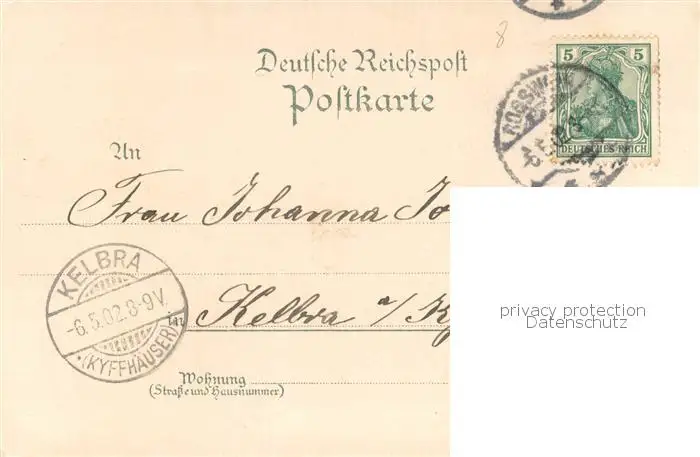 8
5 5
DEUTSCHES REICH
ROSSW
Deutsche Reichspost
Postkarte
An
Frau Johanna Jo
KELBRA
-6.5.02.8-9V.
*(KYFFHÄUSER)*
in Kelbra a/Ky
Wohnung
(Straße und Hausnummer)
privacy protection
Datenschutz